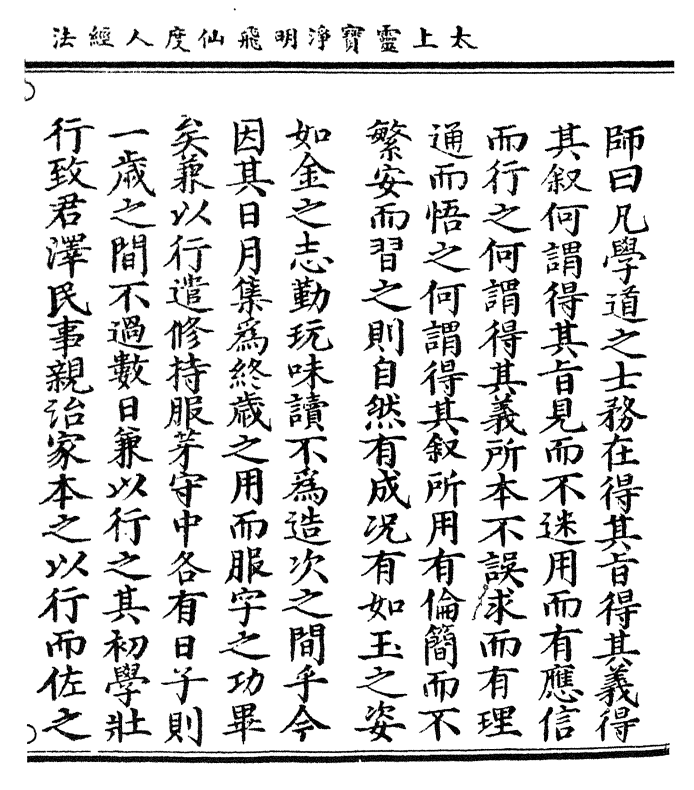 太上靈寶淨明飛仙度人經法
師曰凡學道之士務在得其旨得其義得
其叙何謂得其旨見而不迷用而有應信
而行之何謂得其義所本不誤求而有理
通而悟之何謂得其叙所用有倫簡而不
繁安而習之則自然有成况有如玉之姿
如金之志勤玩味讀不爲造次之間乎今
因其日月集爲終歲之用而服字之功畢
矣兼以行遣修持服芽守中各有日子則
一歲之間不過數日兼以行之其初學壯
行致君澤民事親治家本之以行而佐之